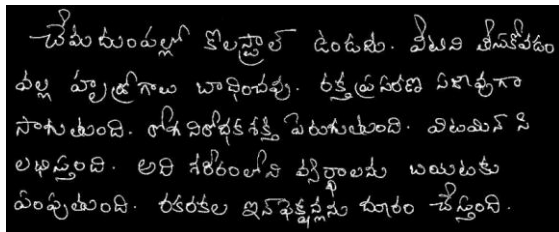 చేమదుంపల్లో కొలస్ట్రాల్ ఉండదు. వీటిని తీసుకోవడం
వల్ల హృద్రోగాలు బాధించవు. రక్త ప్రసరణ సజావుగా
సాగుతుంది. రోగ నిరోధక శక్తి పెరుగుతుంది. విటమిన్ సి
లభిస్తుంది. అది శరీరంలోని వ్యర్థాలను బయటకు
పంపుతుంది. రకరకల ఇన్ఫెక్షన్లను దూరం చేస్తుంది.